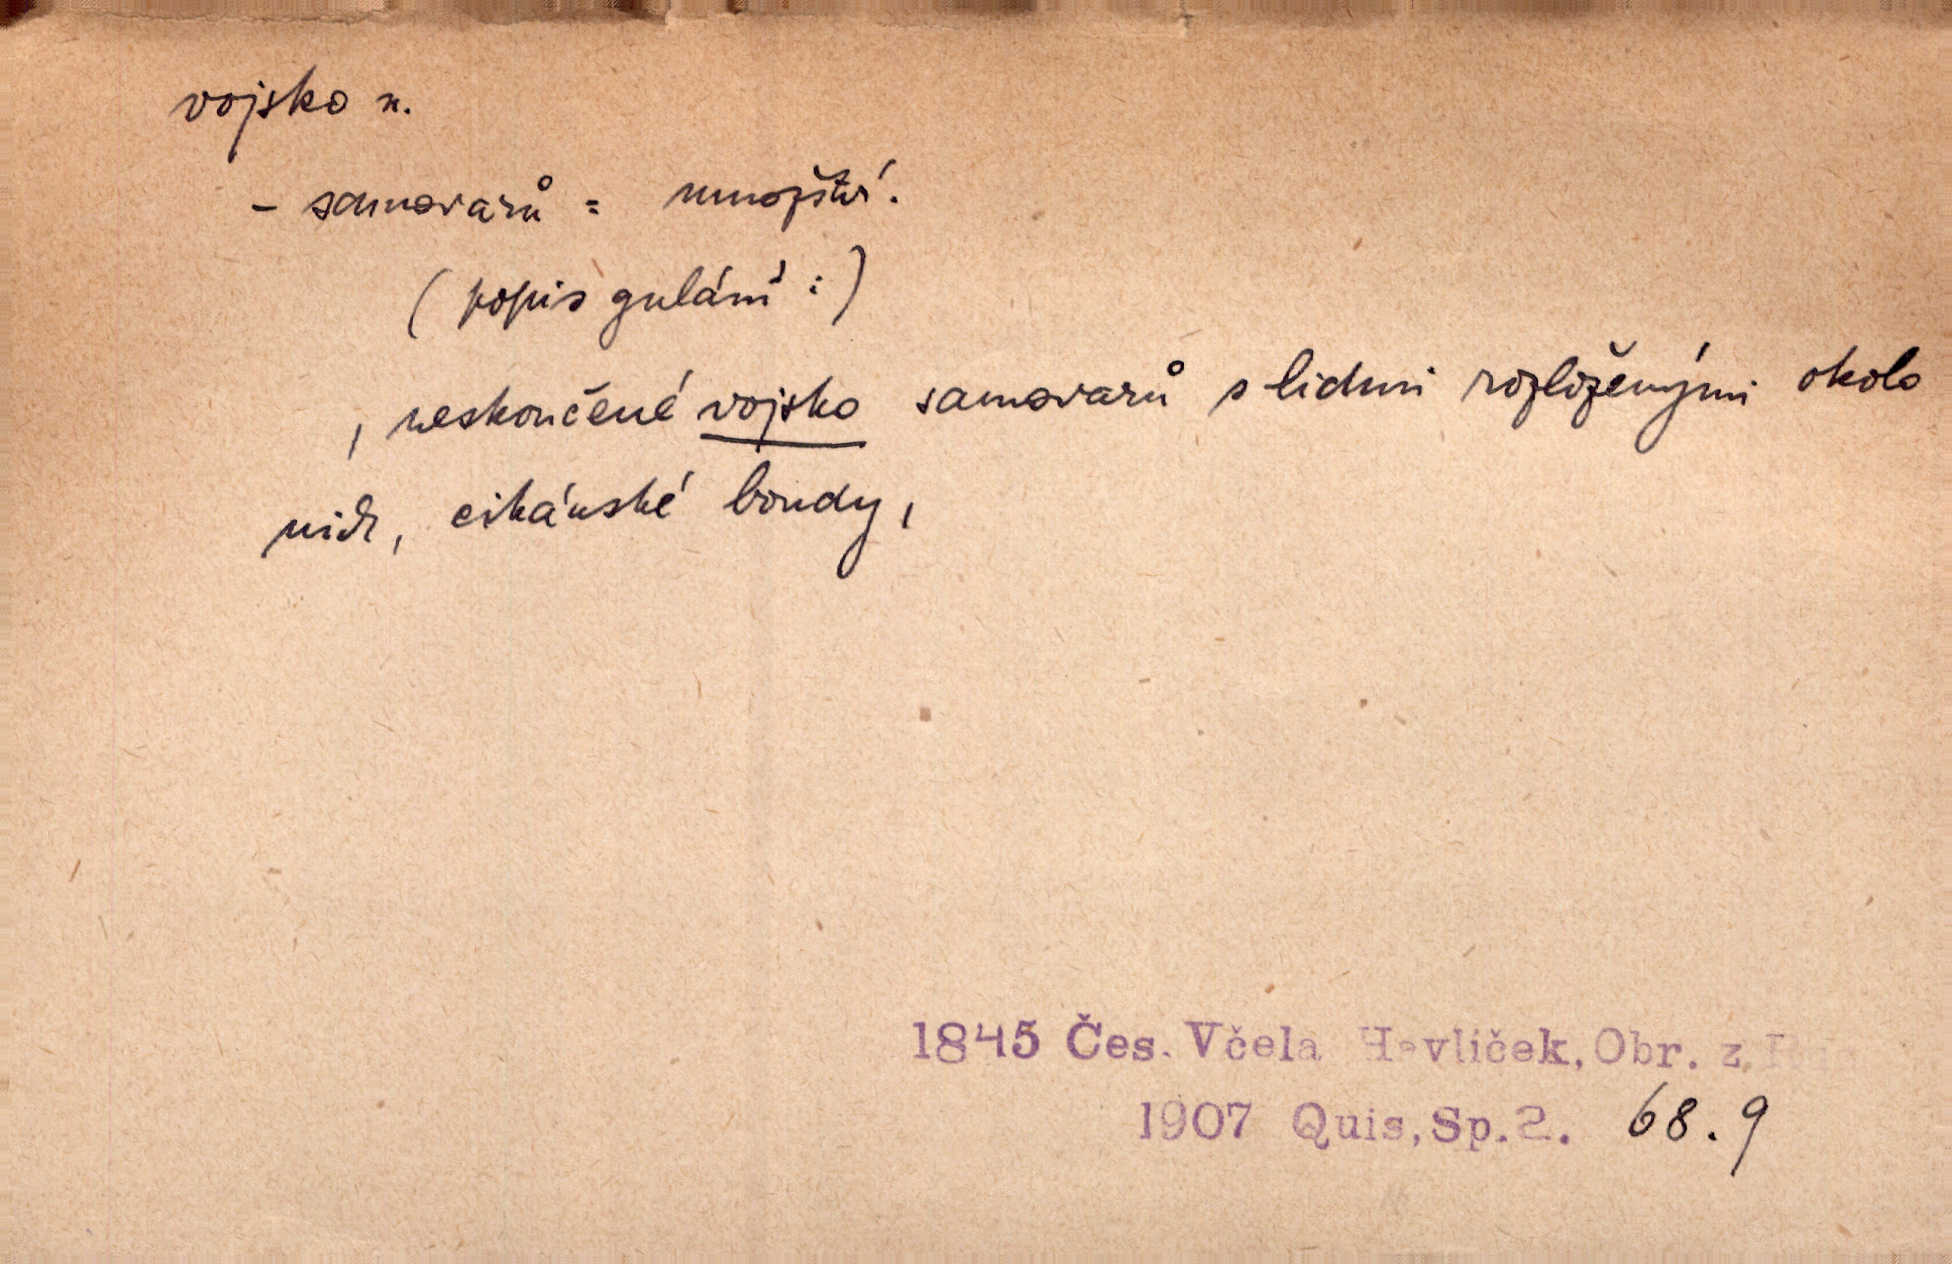 vojsko n.
– samovarů = množství.
(popis gulání :)
, neskončené vojsko samovarů s lidmi rozloženými okolo
nich, cikánské boudy,
1845 Čes. Včela Havlíček, Obr. z
1907 Quis, Sp. 2. 68.9